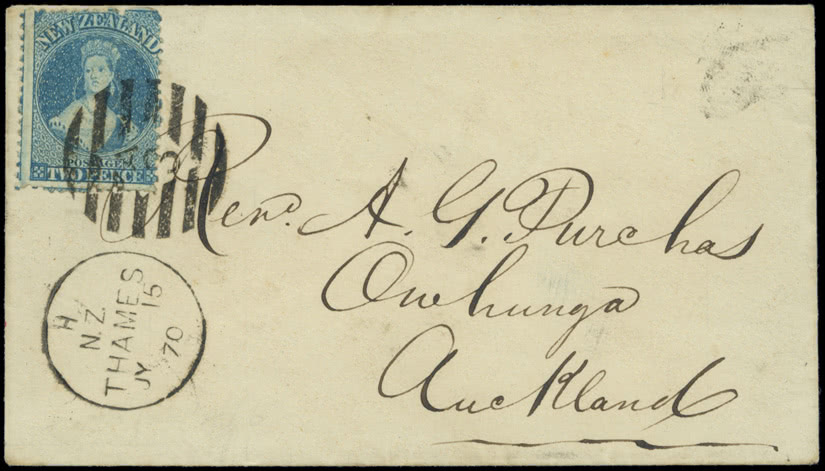 NEW ZEALAND
POSTAGE
TWO PENCE
Revd. A. G. Purchas
Onehunga
Auckland
H
N.Z.
THAMES
JY 15
70